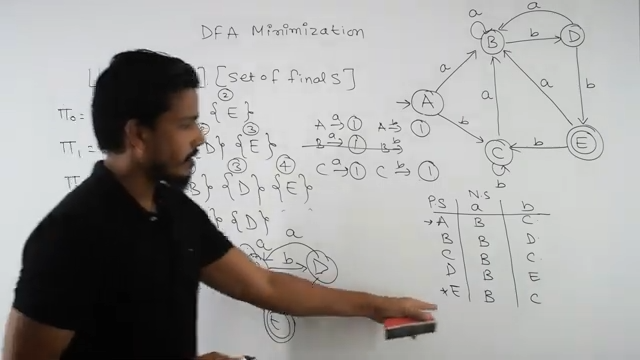 DFA Minimization
[ ] [Set of finals]
②
Π₀= {E}
③
Π₁= D} {E}
③ ④
Π B} {D} {E}
{D}
A a→ ① A b→ ①
B a→ ① B b→
C a→ ① C b→ ①
a
a
b
D
E
a
a
B
b
D
a
a
b
A
b
a
C
b
E
b
N.S
P.S a b
→A B C
B B D
C B C
D B E
*E B C